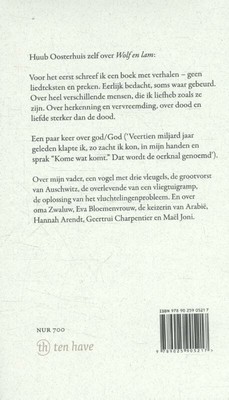 Huub Oosterhuis zelf over Wolf en lam:
Voor het eerst schreef ik een boek met verhalen – geen
liedteksten en preken. Eerlijk bedacht, soms waar gebeurd.
Over heel verschillende mensen, die ik liefheb zoals ze
zijn. Over herkenning en vervreemding, over dood en
liefde sterker dan de dood.
Een paar keer over god/God (‘Veertien miljard jaar
geleden klapte ik, zo zacht ik kon, in mijn handen en
sprak “Kome wat komt.” Dat wordt de oerknal genoemd’).
Over mijn vader, een vogel met drie vleugels, de grootvorst
van Auschwitz, de overlevende van een vliegtuigramp,
de oplossing van het vluchtelingenprobleem. En over
oma Zwaluw, Eva Bloemenvrouw, de keizerin van Arabië,
Hannah Arendt, Geertrui Charpentier en Maël Joni.
ISBN 978 90 259 0521 7
NUR 700
th ten have
9 789025 905217